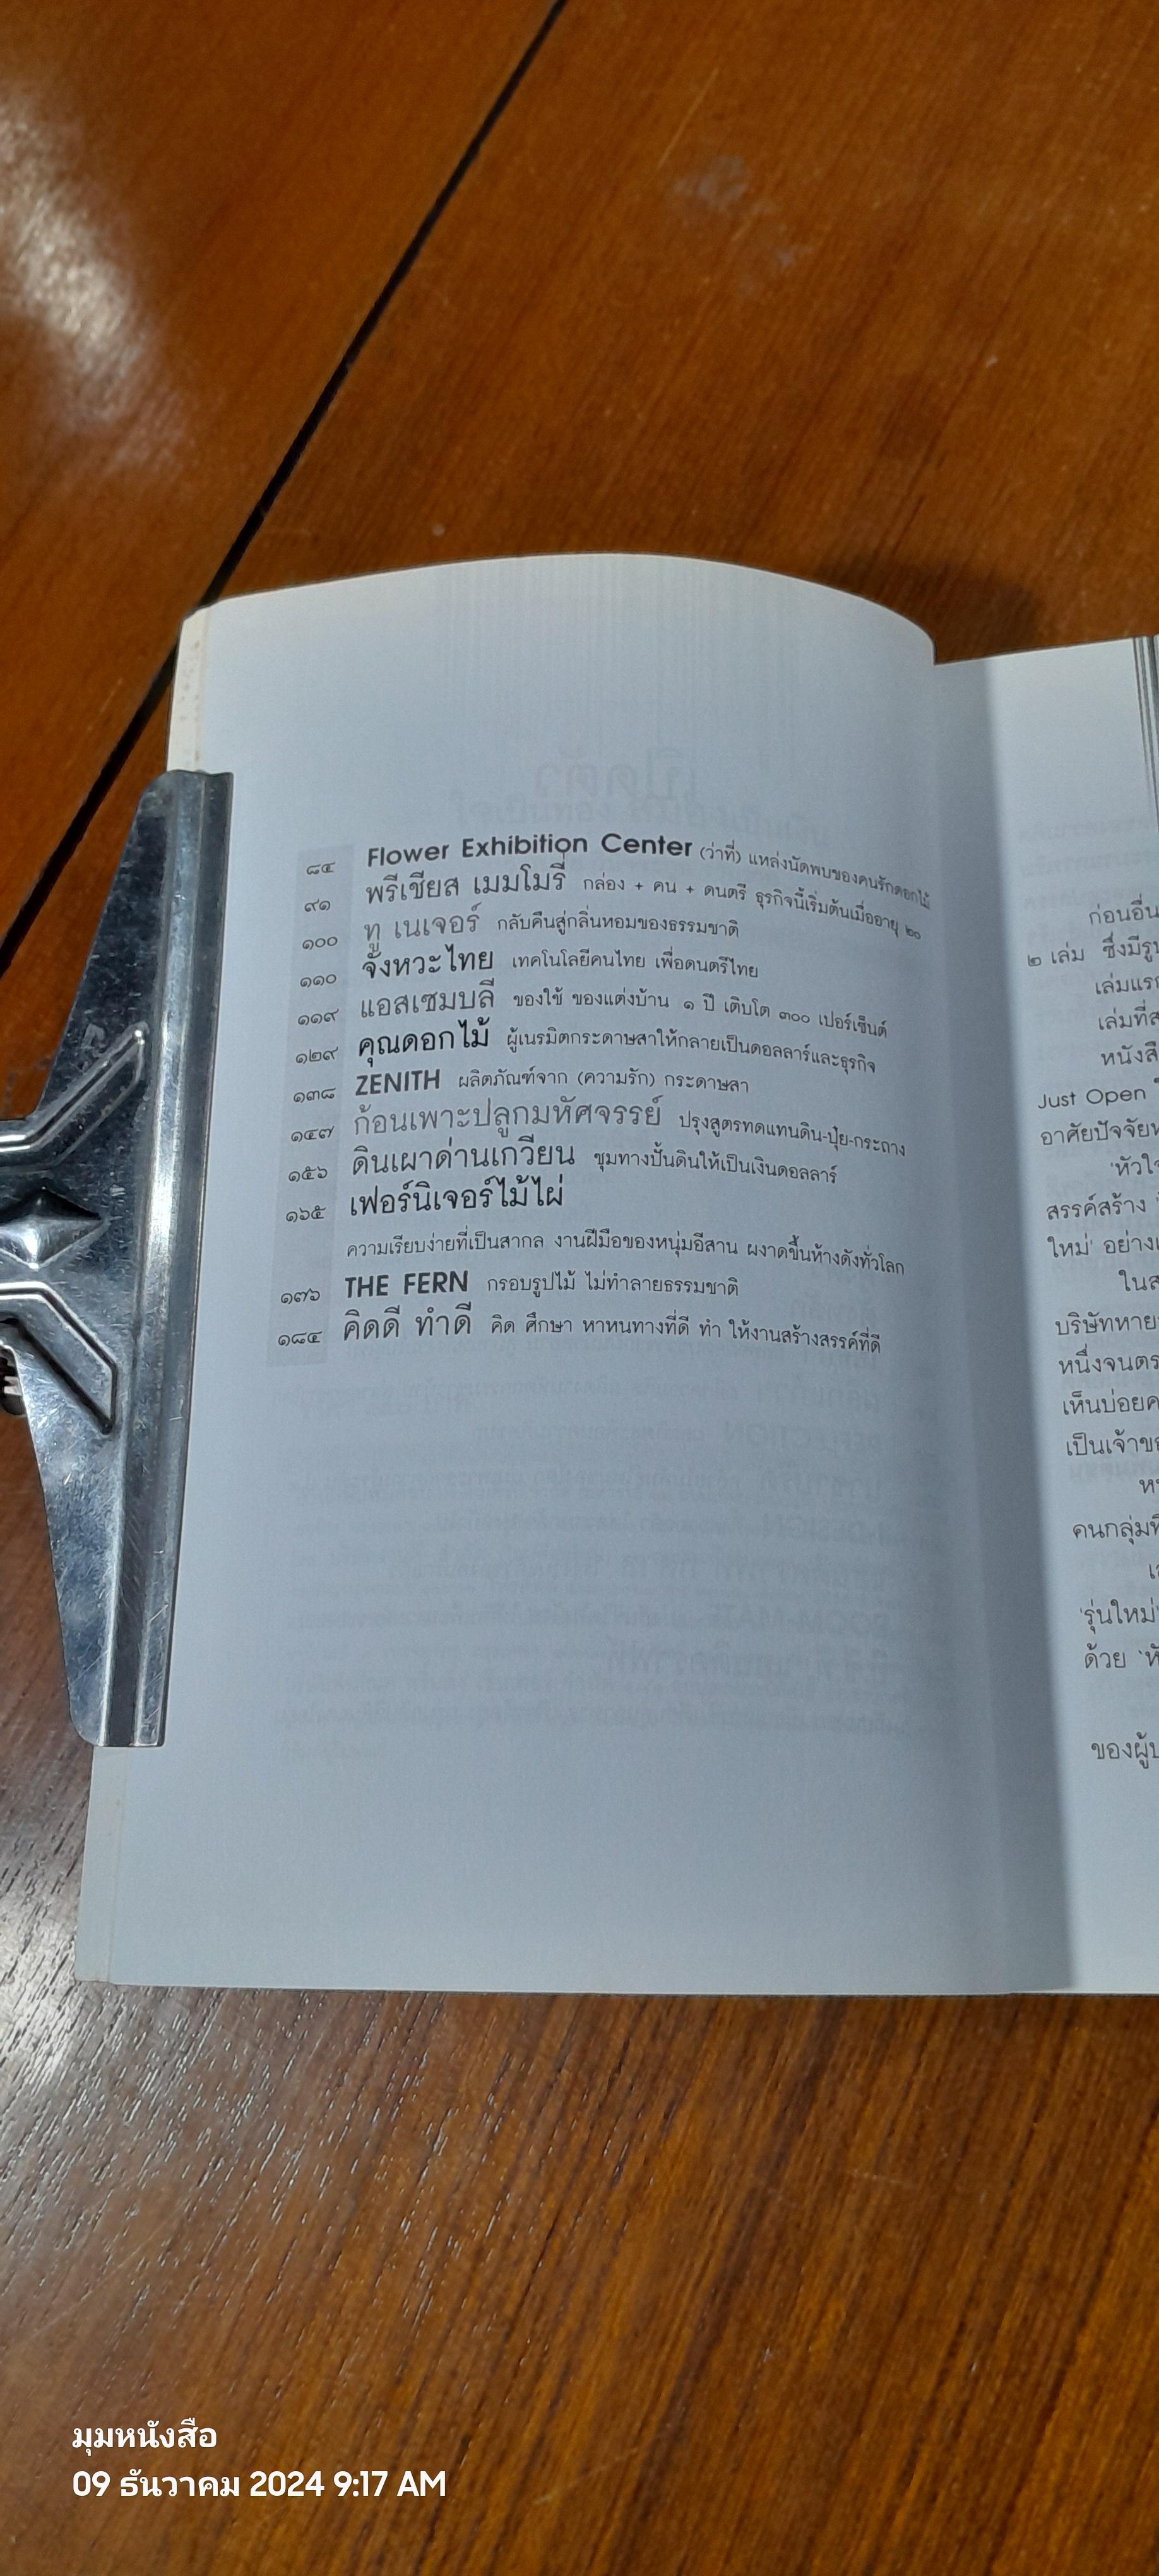 ๘๔ Flower Exhibition Center (ว่าที่) แหล่งนัดพบของคนรักดอกไม้
๙๑ พรีเชียส เมมโมรี่ กล่อง + คน + ดนตรี ธุรกิจนี้เริ่มต้นเมื่ออายุ ๒๐
๑๐๐ ทู เนเจอร์ กลับคืนสู่กลิ่นหอมของธรรมชาติ
๑๑๐ จังหวะไทย เทคโนโลยีคนไทย เพื่อดนตรีไทย
๑๑๙ แอสเซมบลี ของใช้ ของแต่งบ้าน ๑ ปี เติบโต ๓๐๐ เปอร์เซ็นต์
๑๒๙ คุณดอกไม้ ผู้เนรมิตกระดาษสาให้กลายเป็นดอลลาร์และธุรกิจ
๑๓๘ ZENITH ผลิตภัณฑ์จาก (ความรัก) กระดาษสา
๑๔๗ ก้อนเพาะปลูกมหัศจรรย์ ปรุงสูตรทดแทนดิน-ปุ๋ย-กระถาง
๑๕๖ ดินเผาด่านเกวียน ชุมทางปั้นดินให้เป็นเงินดอลลาร์
๑๖๕ เฟอร์นิเจอร์ไม้ไผ่
ความเรียบง่ายที่เป็นสากล งานฝีมือของหนุ่มอีสาน ผงาดขึ้นห้างดังทั่วโลก
๑๗๖ THE FERN กรอบรูปไม้ ไม่ทำลายธรรมชาติ
๑๘๔ คิดดี ทำดี คิด ศึกษา หาหนทางที่ดี ทำ ให้งานสร้างสรรค์ที่ดี
ก่อนอื่น
๒ เล่ม ซึ่งมีรูป
เล่มแรก
เล่มที่ส
หนังสื
Just Open
อาศัยปัจจัย
'หัวใจ
สรรค์สร้าง
ใหม่' อย่าง
ในส
บริษัทหาย
หนึ่งจนตร
เห็นบ่อยค
เป็นเจ้าขอ
ห
คนกลุ่มที่
เ
'รุ่นใหม่'
ด้วย 'หั
ของผู้ป
มุมหนังสือ
09 ธันวาคม 2024 9:17 AM